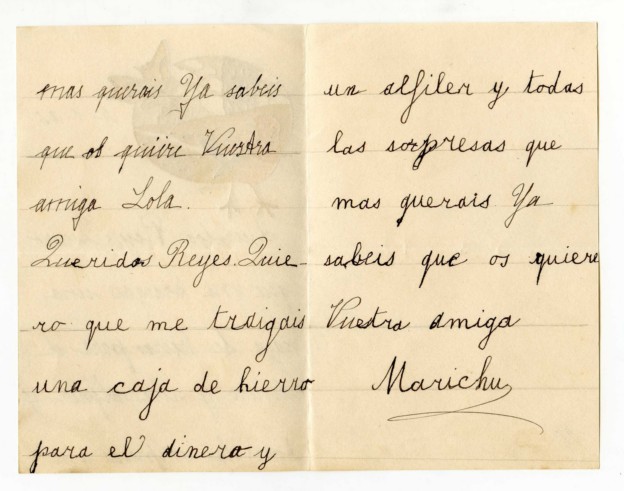 mas querais Ya sabeis
que os quiire Vuestra
amiga Lola.
Queridos Reyes. Quie-
ro que me traigais
una caja de hierro
para el dinero y
un alfiler y todas
las sorpresas que
mas querais Ya
sabeis que os quiere
Vuestra amiga
Marichu